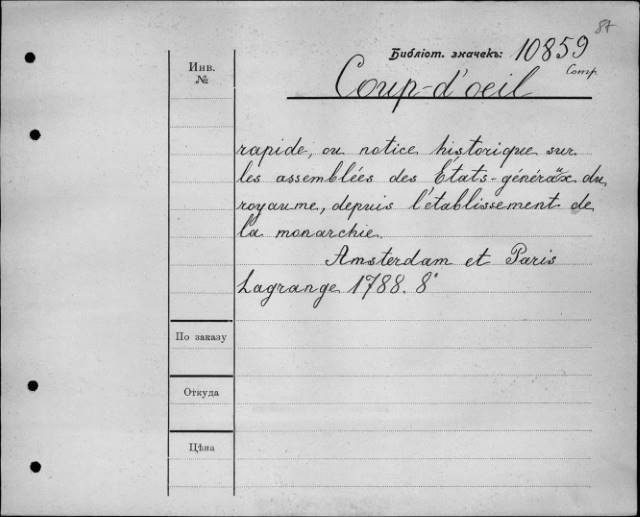 87
Библіот. значекъ: 10859
Comp.
Инв.
№
Coup-d'oeil
rapide, ou notice historique sur
les assemblées des États-généraux du
royaume, depuis l'établissement de
la monarchie.
Amsterdam et Paris
Lagrange 1788. 8°
По заказу
Откуда
Цѣна